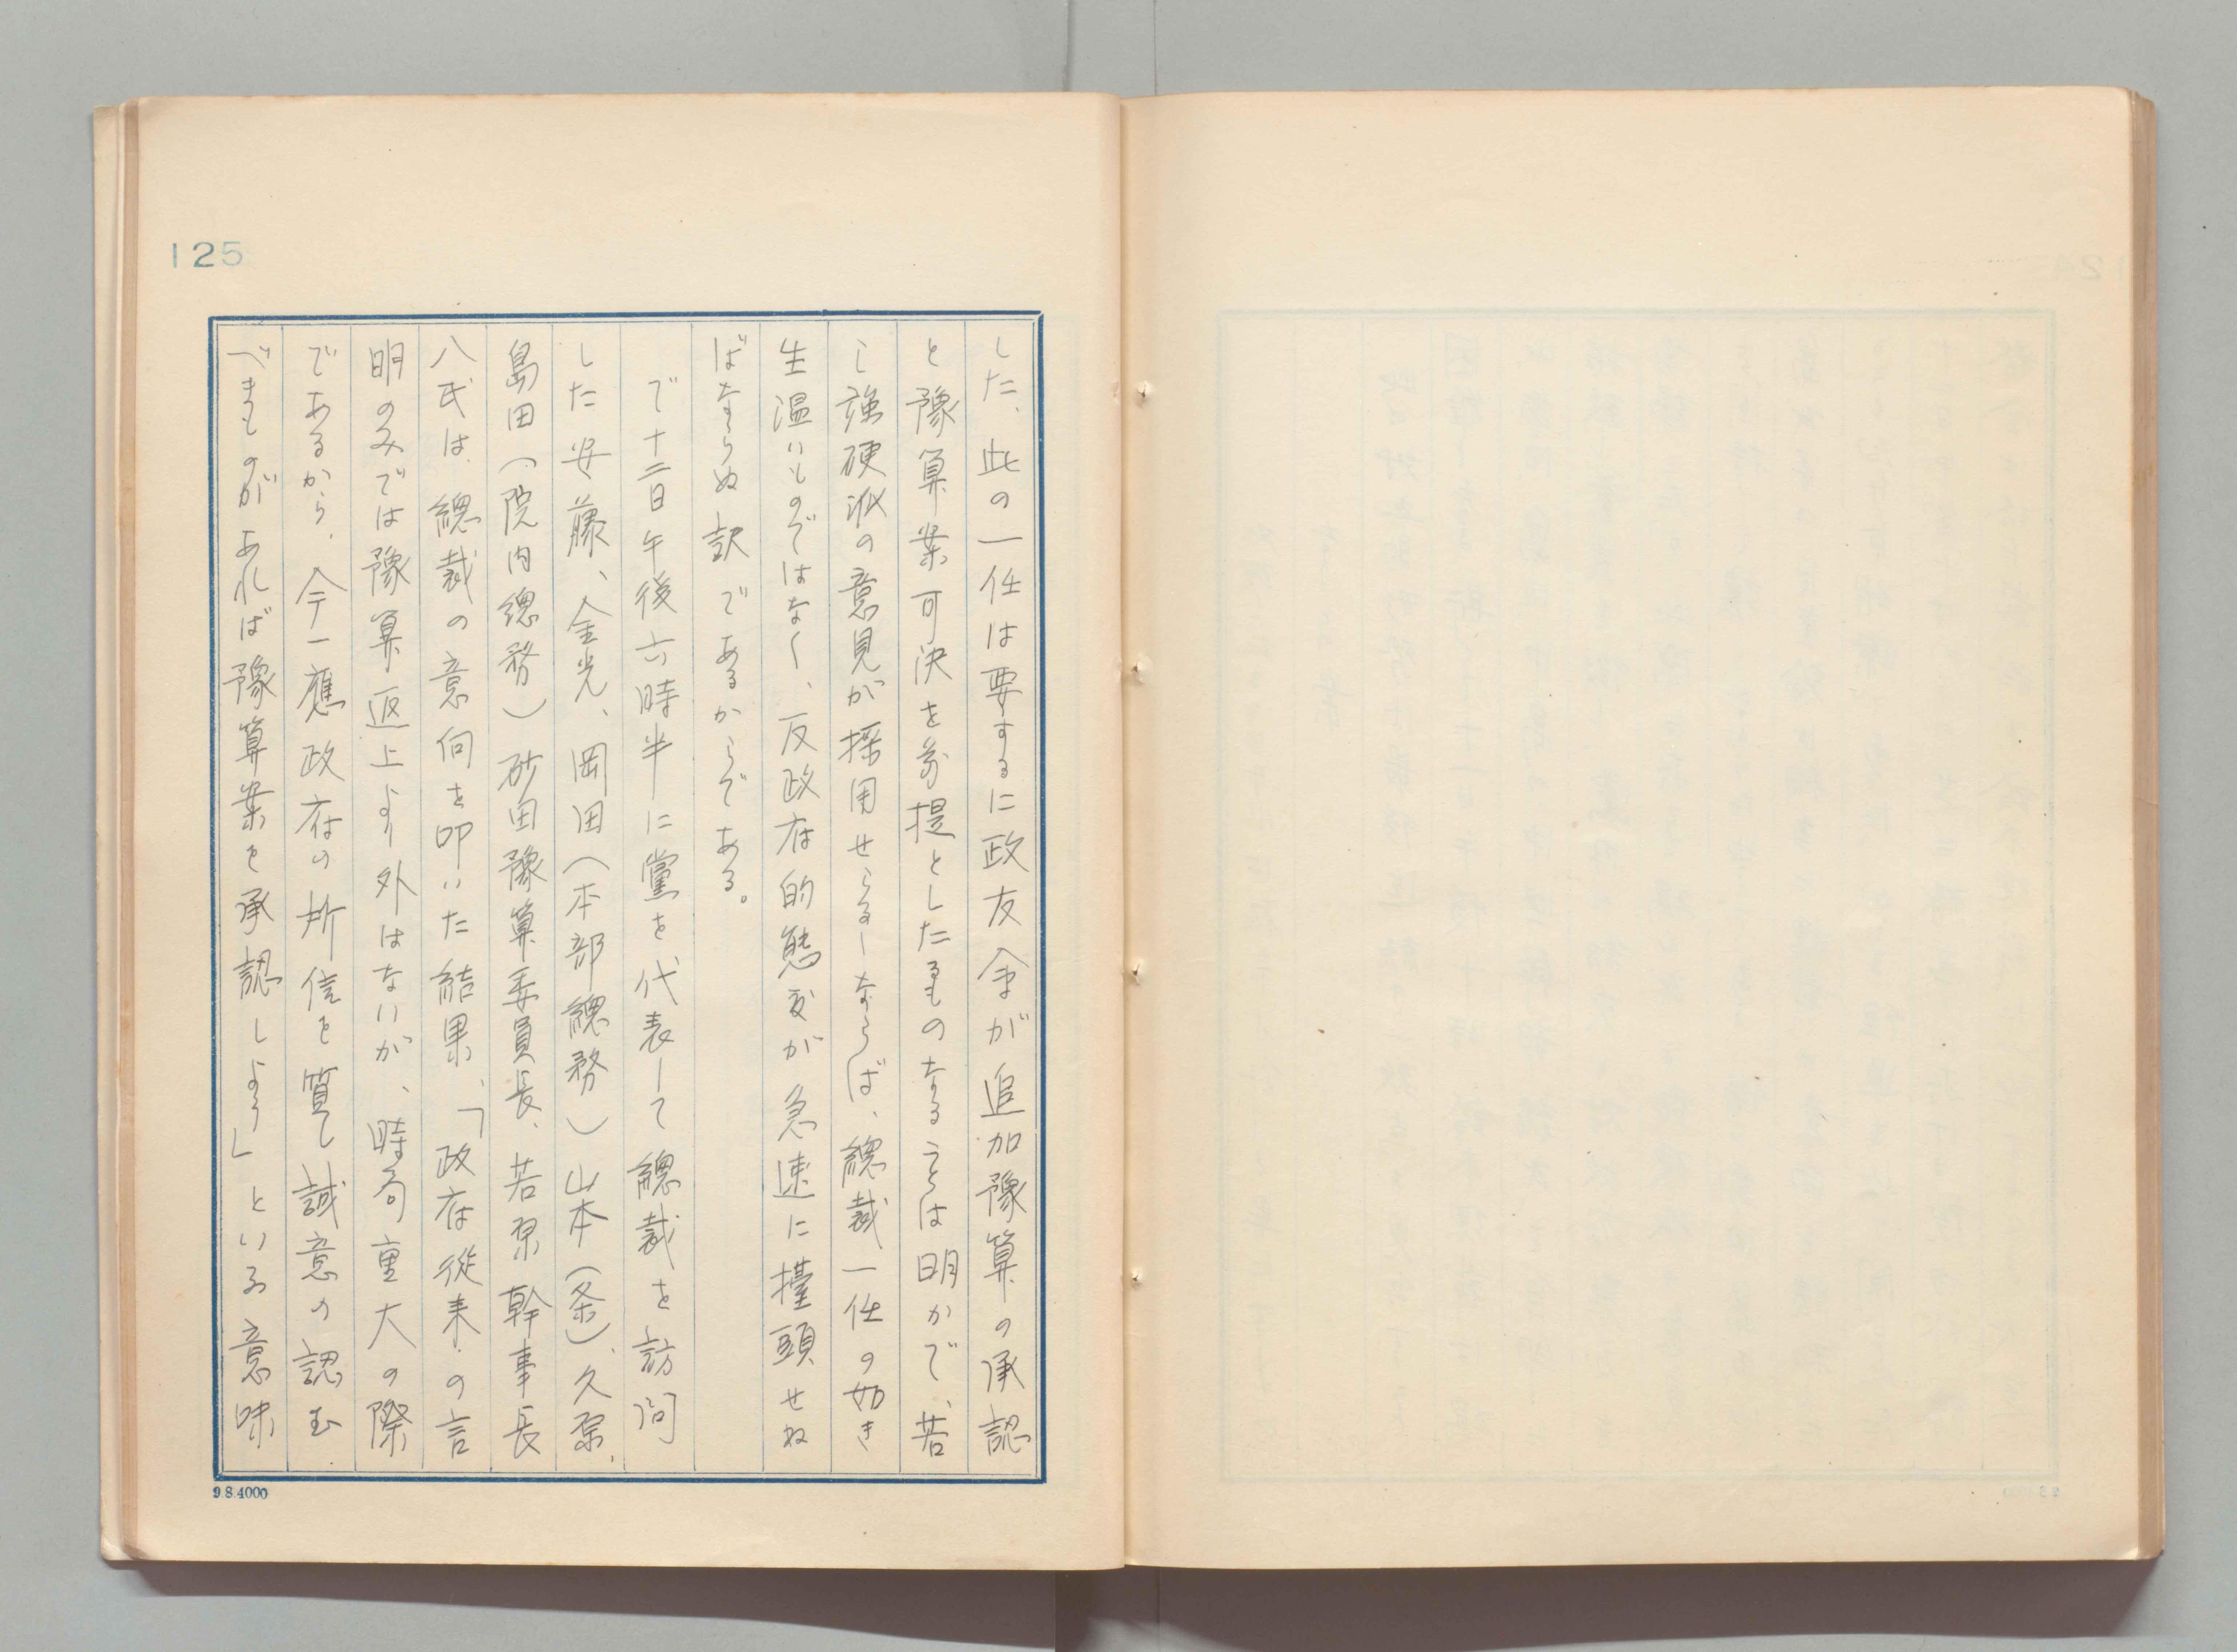 125
した、此の一任は要するに政友会が追加豫算の承認
と豫算案可決を前提としたるものなることは明かで、若
し強硬派の意見が採用せらるーならば、總裁一任の如き
生温いものではなく、反政府的態度が急速に擡頭せね
ばならぬ訳であるからである。
で十二日午後六時半に黨を代表して總裁を訪问
した安藤、金光、岡田（本部總務）山本（条）、久原、
島田（院内總務）砂田豫算委員長、若宮幹事長
八氏は、總裁の意向を叩いた結果、「政府従来の言
明のみでは豫算返上より外はないが、時局重大の際
であるから、今一應政府の所信を質し誠意の認む
べきものがあれば豫算案を承認しよう」といふ意味
9.8.4000